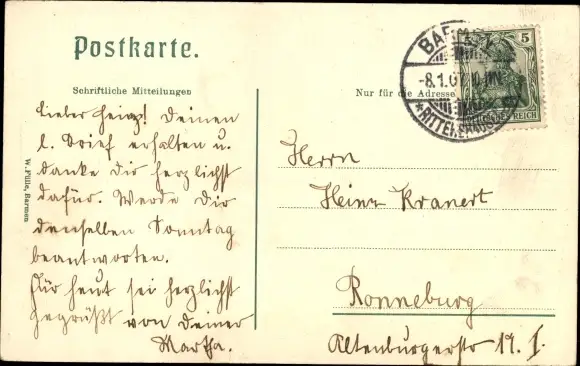 Postkarte.
Schriftliche Mitteilungen
Nur für die Adresse
lieber Heinz! Deinen
l. Brief erhalten u.
danke Dir herzlichst
dafür. Werde Dir
denselben Sonntag
beantworten.
Für heut sei herzlichst
gegrüßt von Deiner
Martha.
W. Fülle, Barmen
BARMEN
-8.1.07.
*RITTERSHAUSEN
5
DEUTSCHES REICH
Herrn
Heinz Kranert
Ronneburg
Altenburgerstr 19. I.